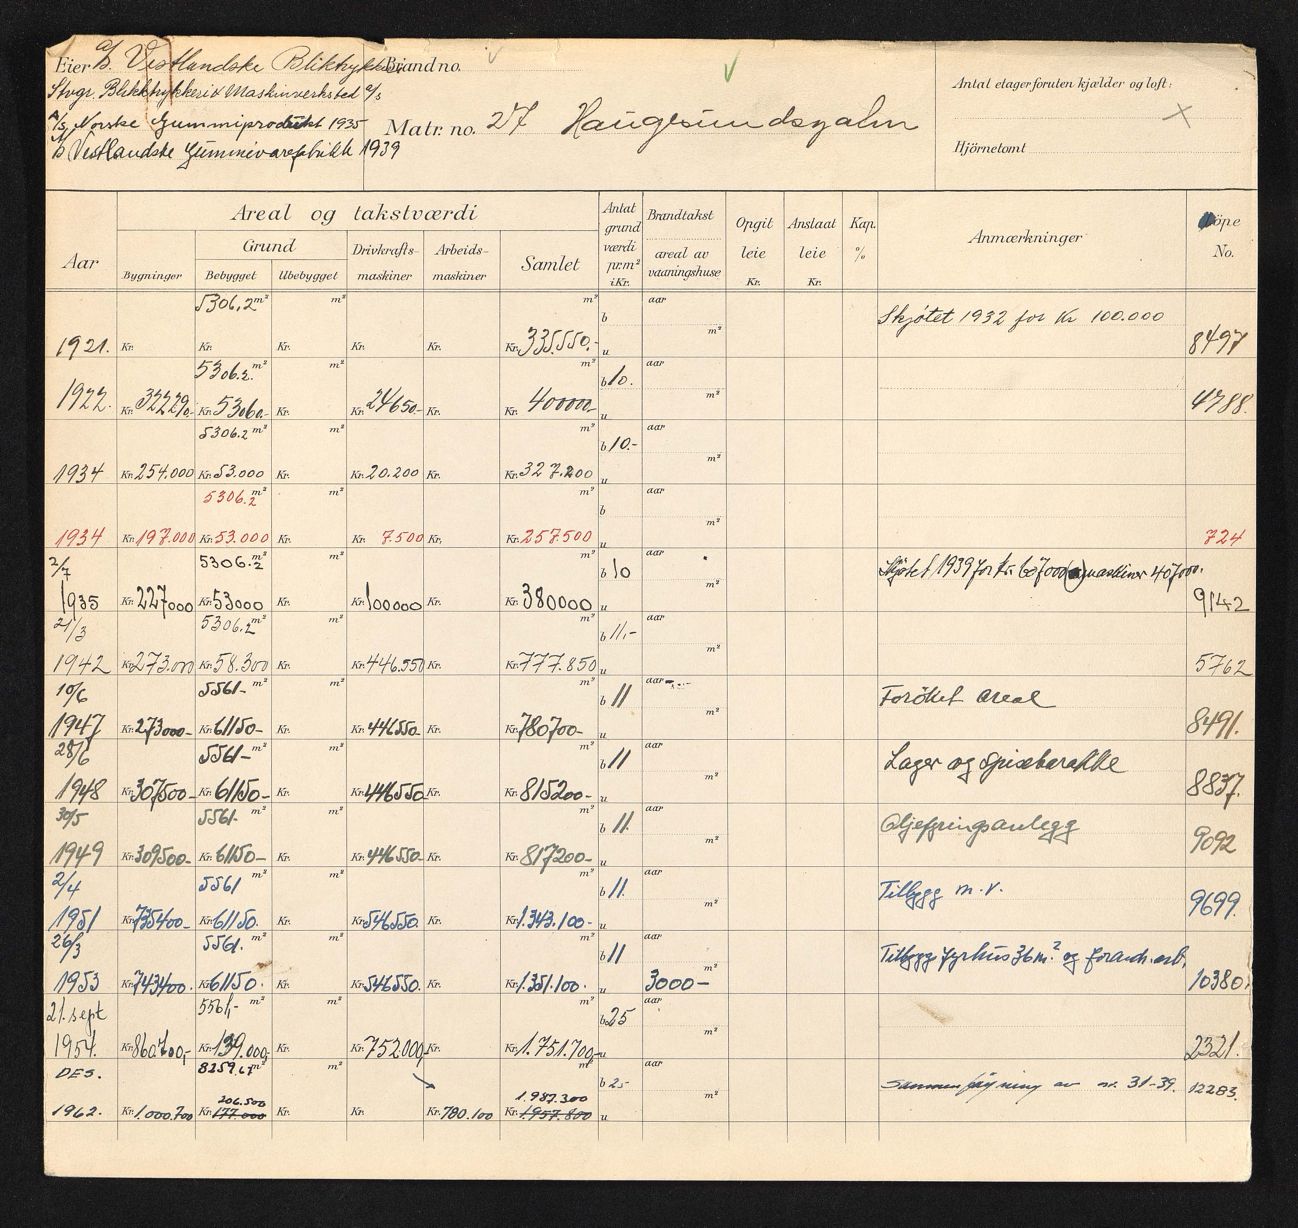 Eier A/S Vestlandske Blikktrykkeri Brandno.
Stvgr. Blikktrykkeri & Maskinverksted A/S
A/S Norske Gummiprodukt 1935
A/S Vestlandske Gummivarefabrikk 1939
Matr. no. 27 Haugesundsgaten
Antal etager foruten kjælder og loft: X
Hjörnetomt
Areal og takstværdi
Aar Bygninger Grund Bebygget Ubebygget Drivkrafts-maskiner Arbeids-maskiner Samlet Antat grund værdi pr. m² i Kr. Brandtakst areal av vaaningshuse Opgit leie Kr. Anslaat leie Kr. Kap. % Anmærkninger Löpe No.
5306.2 m² m² m² b aar Skjøtet 1932 for Kr 100.000
1921. Kr. Kr. Kr. Kr. Kr. Kr. 335.550.- u m² 8497
5306.2 m² m² m² b 10. aar
1922. Kr. 322290.- Kr. 53060.- Kr. Kr. 24650.- Kr. Kr. 400000.- u m² 4788.
5306.2 m² m² m² b 10.- aar
1934 Kr. 254.000 Kr. 53.000 Kr. Kr. 20.200 Kr. Kr. 327.200 u m²
5306.2 m² m² m² b aar
1934 Kr. 197.000 Kr. 53.000 Kr. Kr. 7.500 Kr. Kr. 257.500 u m² 724
2/7 5306.2 m² m² m² b 10 aar Skjøtet 1939 for kr. 607000 maskiner 407000.
1935 Kr. 227000 Kr. 53000 Kr. Kr. 100000 Kr. Kr. 380000 u m² 9142
21/3 5306.2 m² m² m² b 11,- aar
1942 Kr. 273.000 Kr. 58.300 Kr. Kr. 446.550 Kr. Kr. 777.850 u m² 5762
10/6 5561- m² m² m² b 11 aar Forøket areal
1947 Kr. 273000- Kr. 61150- Kr. Kr. 446550- Kr. Kr. 780700- u m² 8491.
28/6 5561- m² m² m² b 11 aar Lager og spisebarakke
1948 Kr. 307500- Kr. 61150- Kr. Kr. 446550- Kr. Kr. 815200- u m² 8837.
30/5 5561- m² m² m² b 11. aar Oljefyringsanlegg
1949 Kr. 309500- Kr. 61150- Kr. Kr. 446550- Kr. Kr. 817200- u m² 9092
2/4 5561 m² m² m² b 11. aar Tilbygg m.v.
1951 Kr. 735400- Kr. 61150. Kr. Kr. 546550. Kr. Kr. 1.343.100- u m² 9699.
26/3 5561. m² m² m² b 11 aar Tilbygg fyrhus 36 m.² og forandr. arb.
1953 Kr. 743400. Kr. 61150. Kr. Kr. 546550. Kr. Kr. 1.351.100. u 3000- m² 10380.
21. sept 5561,- m² m² m² b 25 aar
1954. Kr. 860.700,- Kr. 139.000,- Kr. Kr. 752.000,- Kr. Kr. 1.751.700,- u m² 2321.
DES. 8259.67 m² m² m² b 25- aar Sammenføyning av nr. 31-39. 12283.
206.500 1.987.300
1962. Kr. 1.000.700 Kr. 177.000 Kr. Kr. Kr. 780.100 Kr. 1.957.800 u m²